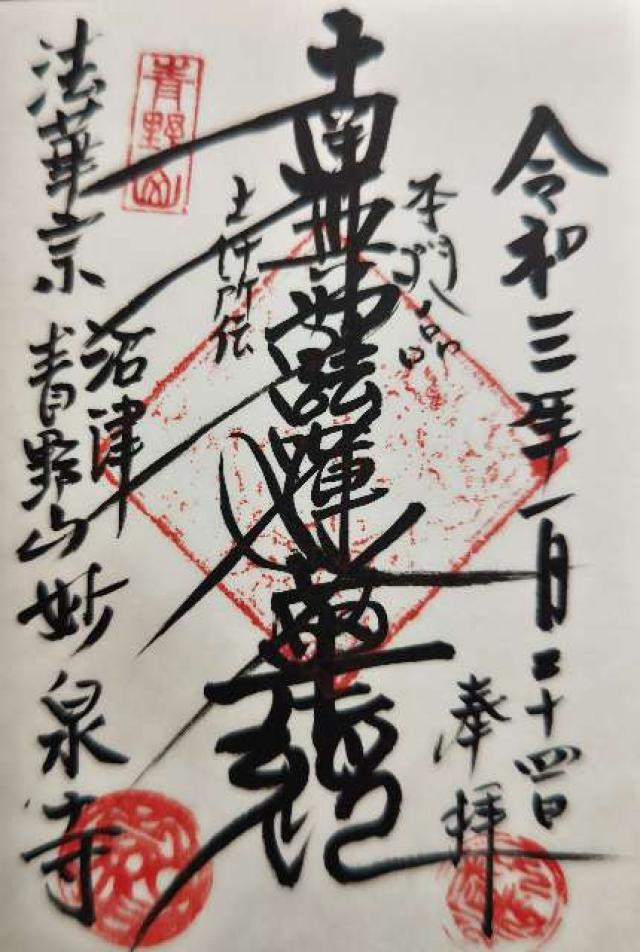 令和三年一月二十四日
奉拝
本門八品
南無妙法蓮華経
上行所伝
青野山
沼津
法華宗 青野山妙泉寺